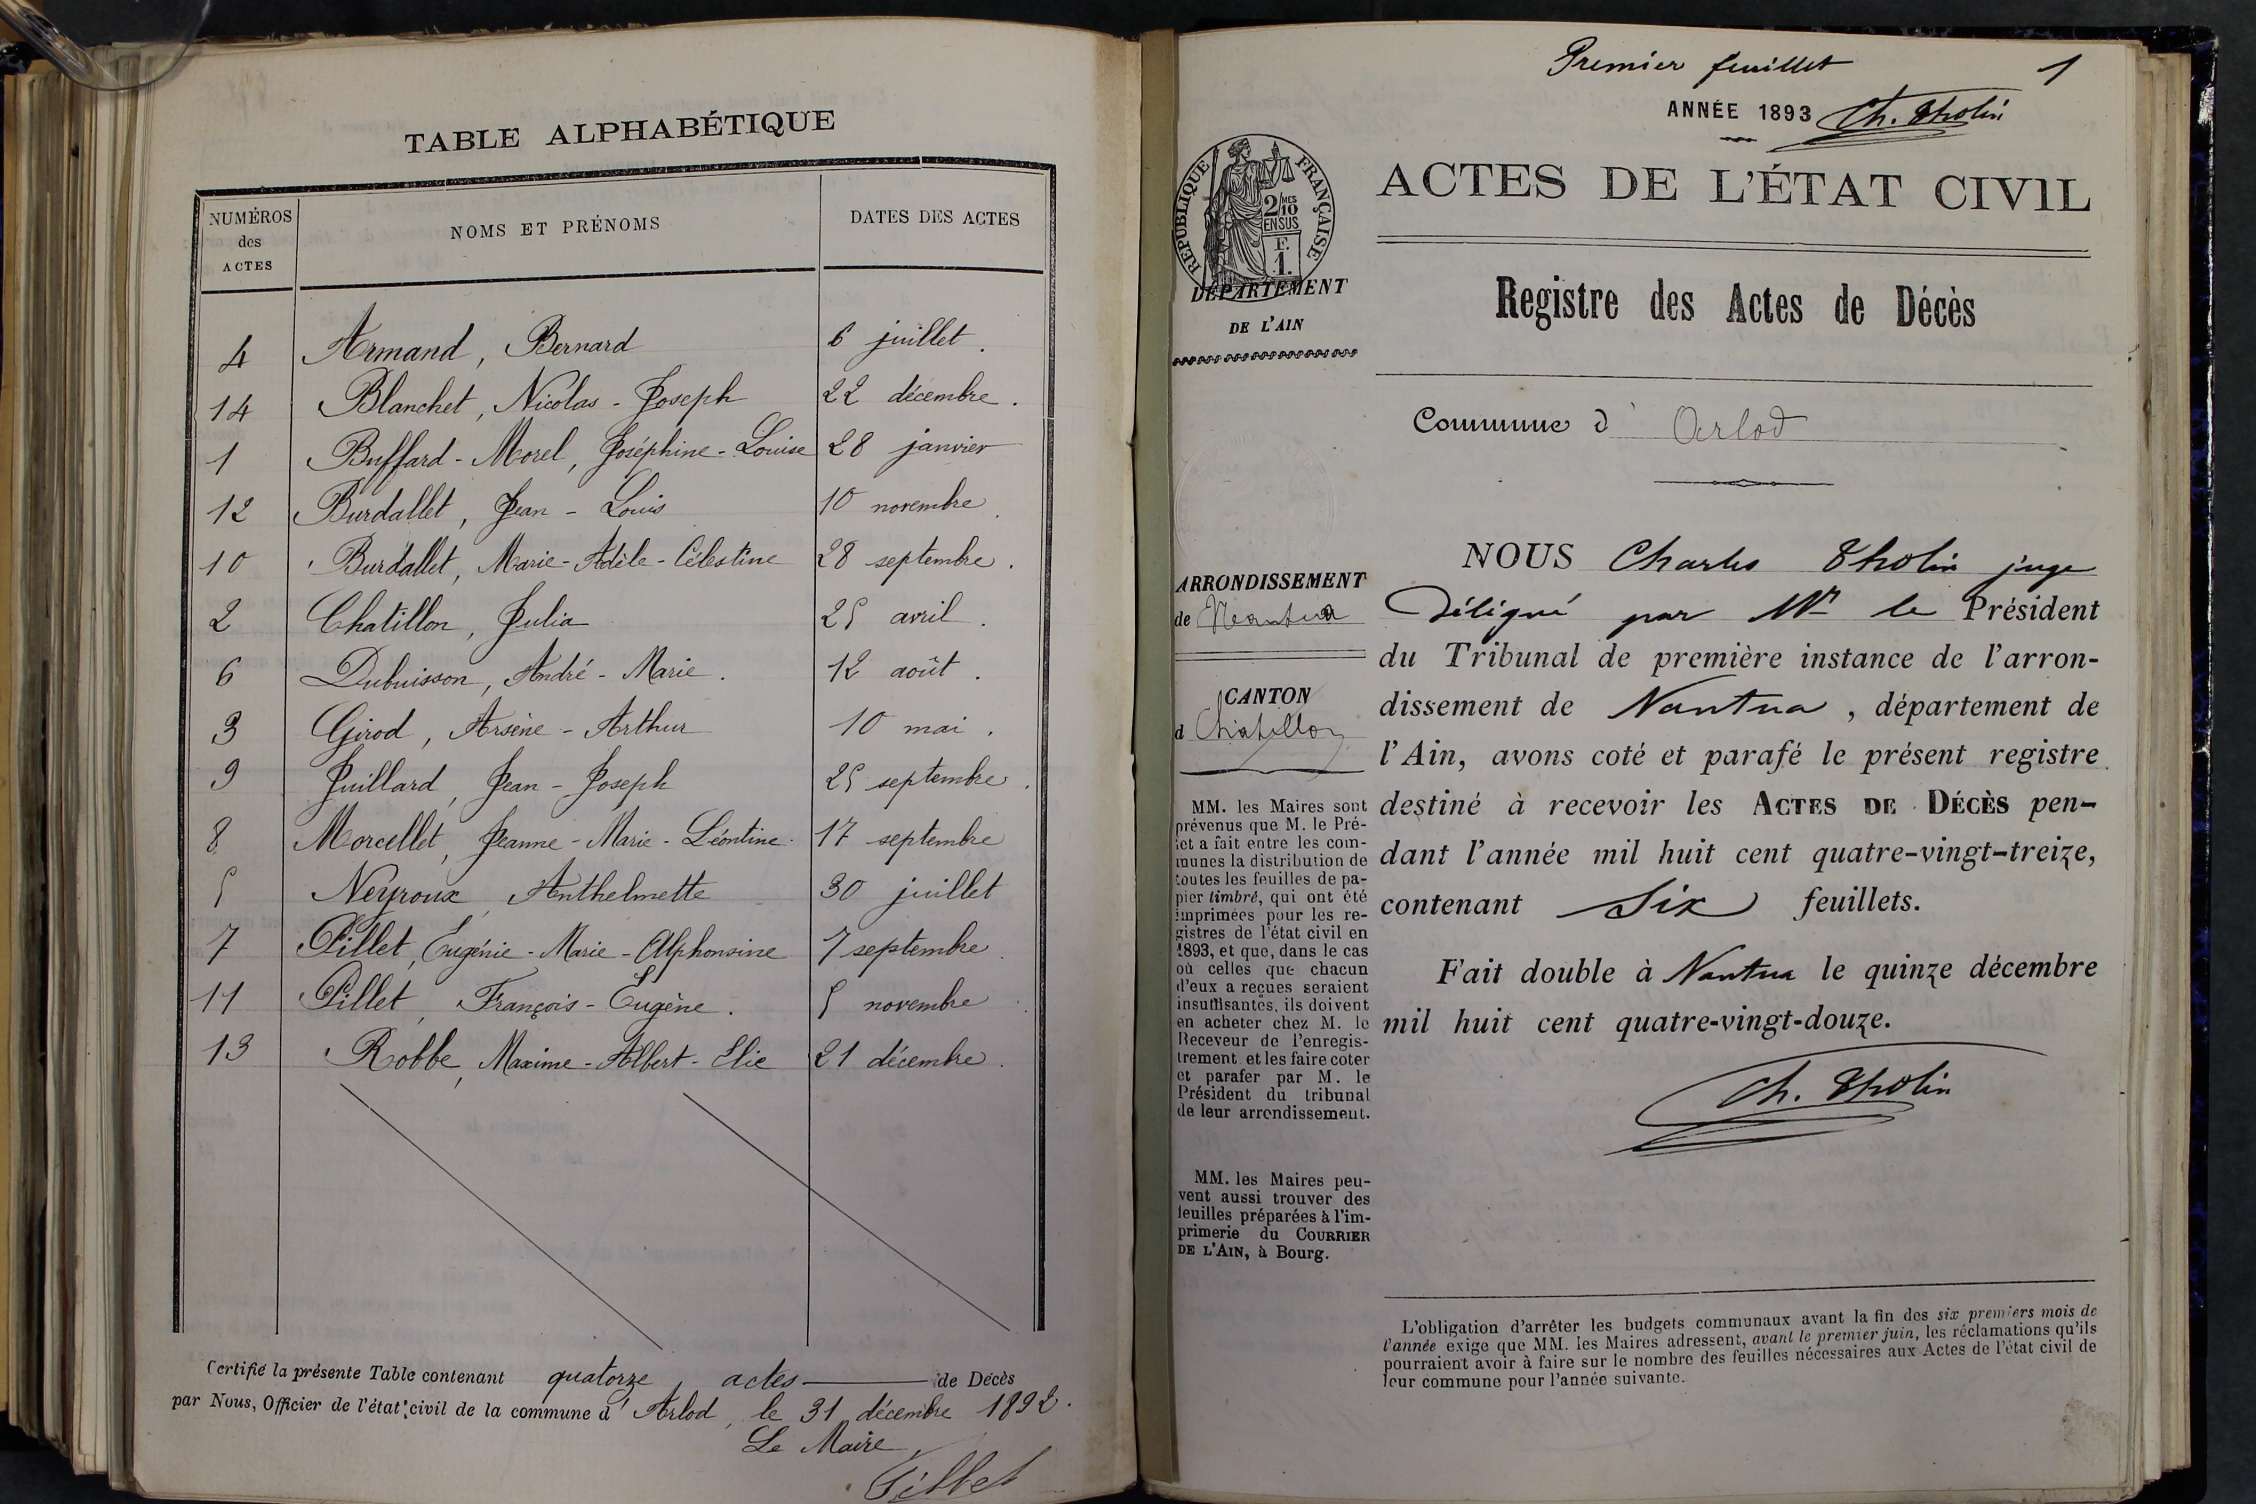 TABLE ALPHABÉTIQUE
NUMÉROS des ACTES NOMS ET PRÉNOMS DATES DES ACTES
4 Armand, Bernard 6 juillet.
14 Blanchet, Nicolas-Joseph 22 décembre.
1 Buffard-Morel, Joséphine-Louise 28 janvier
12 Burdallet, Jean-Louis 10 novembre.
10 Burdallet, Marie-Adèle-Célestine 28 septembre.
2 Chatillon, Julia 25 avril.
6 Dubuisson, André-Marie. 12 août.
3 Girod, Arsène-Arthur 10 mai.
9 Juillard, Jean-Joseph 25 septembre.
8 Morcellet, Jeanne-Marie-Léontine. 17 septembre
5 Neyroux, Anthelmette 30 juillet
7 Pillet, Eugénie-Marie-Alphonsine 7 septembre.
11 Pillet, François-Eugène. 5 novembre.
13 Robbe, Maxime-Albert-Elie 21 décembre.
Certifié la présente Table contenant quatorze actes de Décès
par Nous, Officier de l'état civil de la commune d'Arlod, le 31 décembre 1892.
Le Maire,
Pillet
Premier feuillet 1
ANNÉE 1893 Ch. Tholin
RÉPUBLIQUE FRANÇAISE
2/10MES
EN SUS
F.
1.
DÉPARTEMENT
DE L'AIN
ACTES DE L'ÉTAT CIVIL
Registre des Actes de Décès
Commune d'Arlod
ARRONDISSEMENT
de Nantua
CANTON
d Chatillon
MM. les Maires sont
prévenus que M. le Pré-
fet a fait entre les com-
munes la distribution de
toutes les feuilles de pa-
pier timbré, qui ont été
imprimées pour les re-
gistres de l'état civil en
1893, et que, dans le cas
où celles que chacun
d'eux a reçues seraient
insuffisantes, ils doivent
en acheter chez M. le
Receveur de l'enregis-
trement et les faire coter
et parafer par M. le
Président du tribunal
de leur arrondissement.
MM. les Maires peu-
vent aussi trouver des
feuilles préparées à l'im-
primerie du COURRIER
DE L'AIN, à Bourg.
NOUS Charles Tholin juge
délégué par Mr le Président
du Tribunal de première instance de l'arron-
dissement de Nantua, département de
l'Ain, avons coté et parafé le présent registre
destiné à recevoir les ACTES DE DÉCÈS pen-
dant l'année mil huit cent quatre-vingt-treize,
contenant six feuillets.
Fait double à Nantua le quinze décembre
mil huit cent quatre-vingt-douze.
Ch. Tholin
L'obligation d'arrêter les budgets communaux avant la fin des six premiers mois de
l'année exige que MM. les Maires adressent, avant le premier juin, les réclamations qu'ils
pourraient avoir à faire sur le nombre des feuilles nécessaires aux Actes de l'état civil de
leur commune pour l'année suivante.